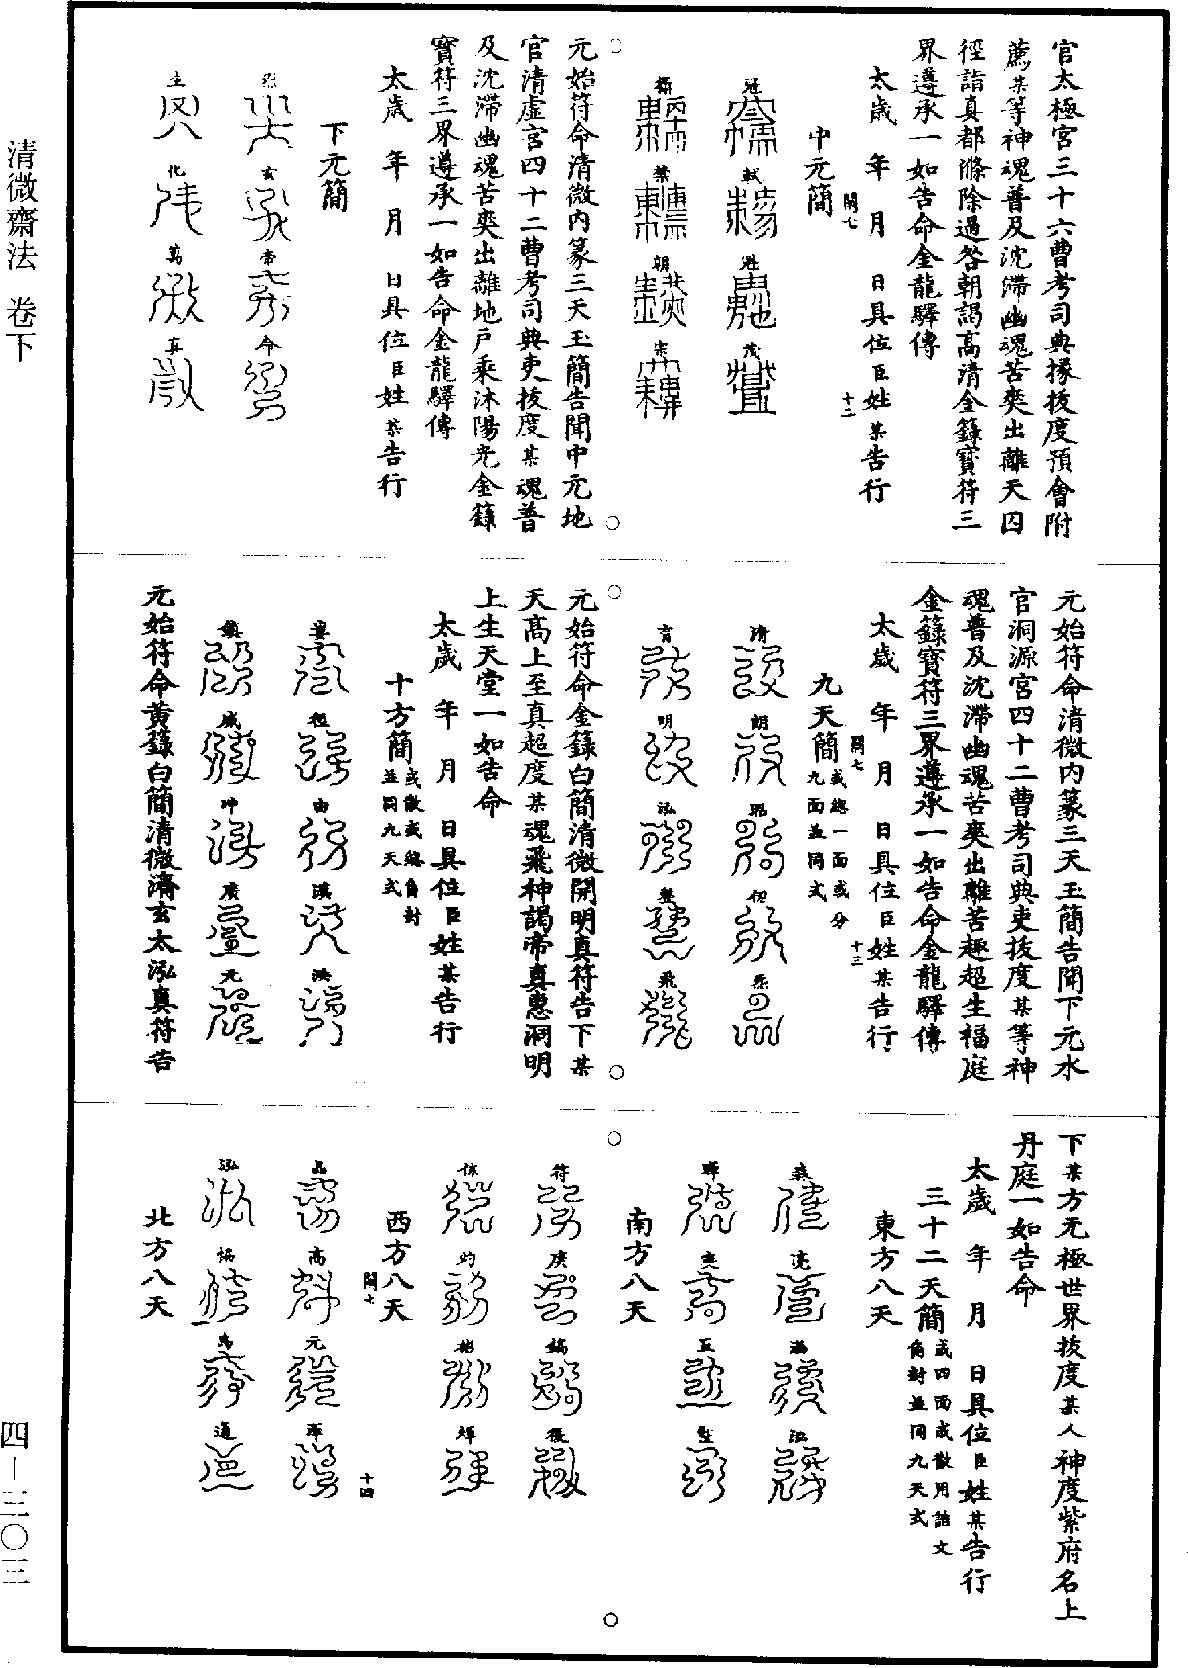 官太極宮三十六曹考司典掾拔度預會附
薦某等神魂普及沈滯幽魂苦爽出離天囚
徑詣真都滌除過咎朝謁高清金籙寶符三
界遵承一如告命金龍驛傳
太歲　年　月　日具位臣姓某告行
中元簡
閑七
十二
冠
軾
魁
茂
蘋
禁
朝
宋
元始符命清微內篆三天玉簡告聞中元地
官清虛宮四十二曹考司典吏拔度某魂普
及沈滯幽魂苦爽出離地戶乘沐陽光金籙
寶符三界遵承一如告命金龍驛傳
太歲　年　月　日具位臣姓某告行
下元簡
玄
帝
命
主
化
萬
真
元始符命清微內篆三天玉簡告聞下元水
官洞源宮四十二曹考司典吏拔度某等神
魂普及沈滯幽魂苦爽出離苦趣超生福庭
金籙寶符三界遵承一如告命金龍驛傳
太歲　年　月　日具位臣姓某告行
九天簡或總一面或分九面並同式
閑七
十三
清
朗
育
明
泓
飛
元始符命金籙白簡清微開明真符告下某
天高上至真超度某魂飛神謁帝真惠洞明
上生天堂一如告命
太歲　年　月　日具位臣姓某告行
十方簡或散或總角封並同九天式
由
洪
鎮
咸
坤
廣
元
元始符命黃籙白簡清微濟玄太泓真符告
下某方无極世界拔度某人神度紫府名上
丹庭一如告命
太歲　年　月　日具位臣姓某告行
三十二天簡或四面或散用誥文角封並同九天式
東方八天
亮
暉
爽
南方八天
符
庚
鎬
後
均
彬
輝
西方八天
閑七
十四
高
元
泓
協
通
北方八天
清微齋法　卷下
四—三〇三